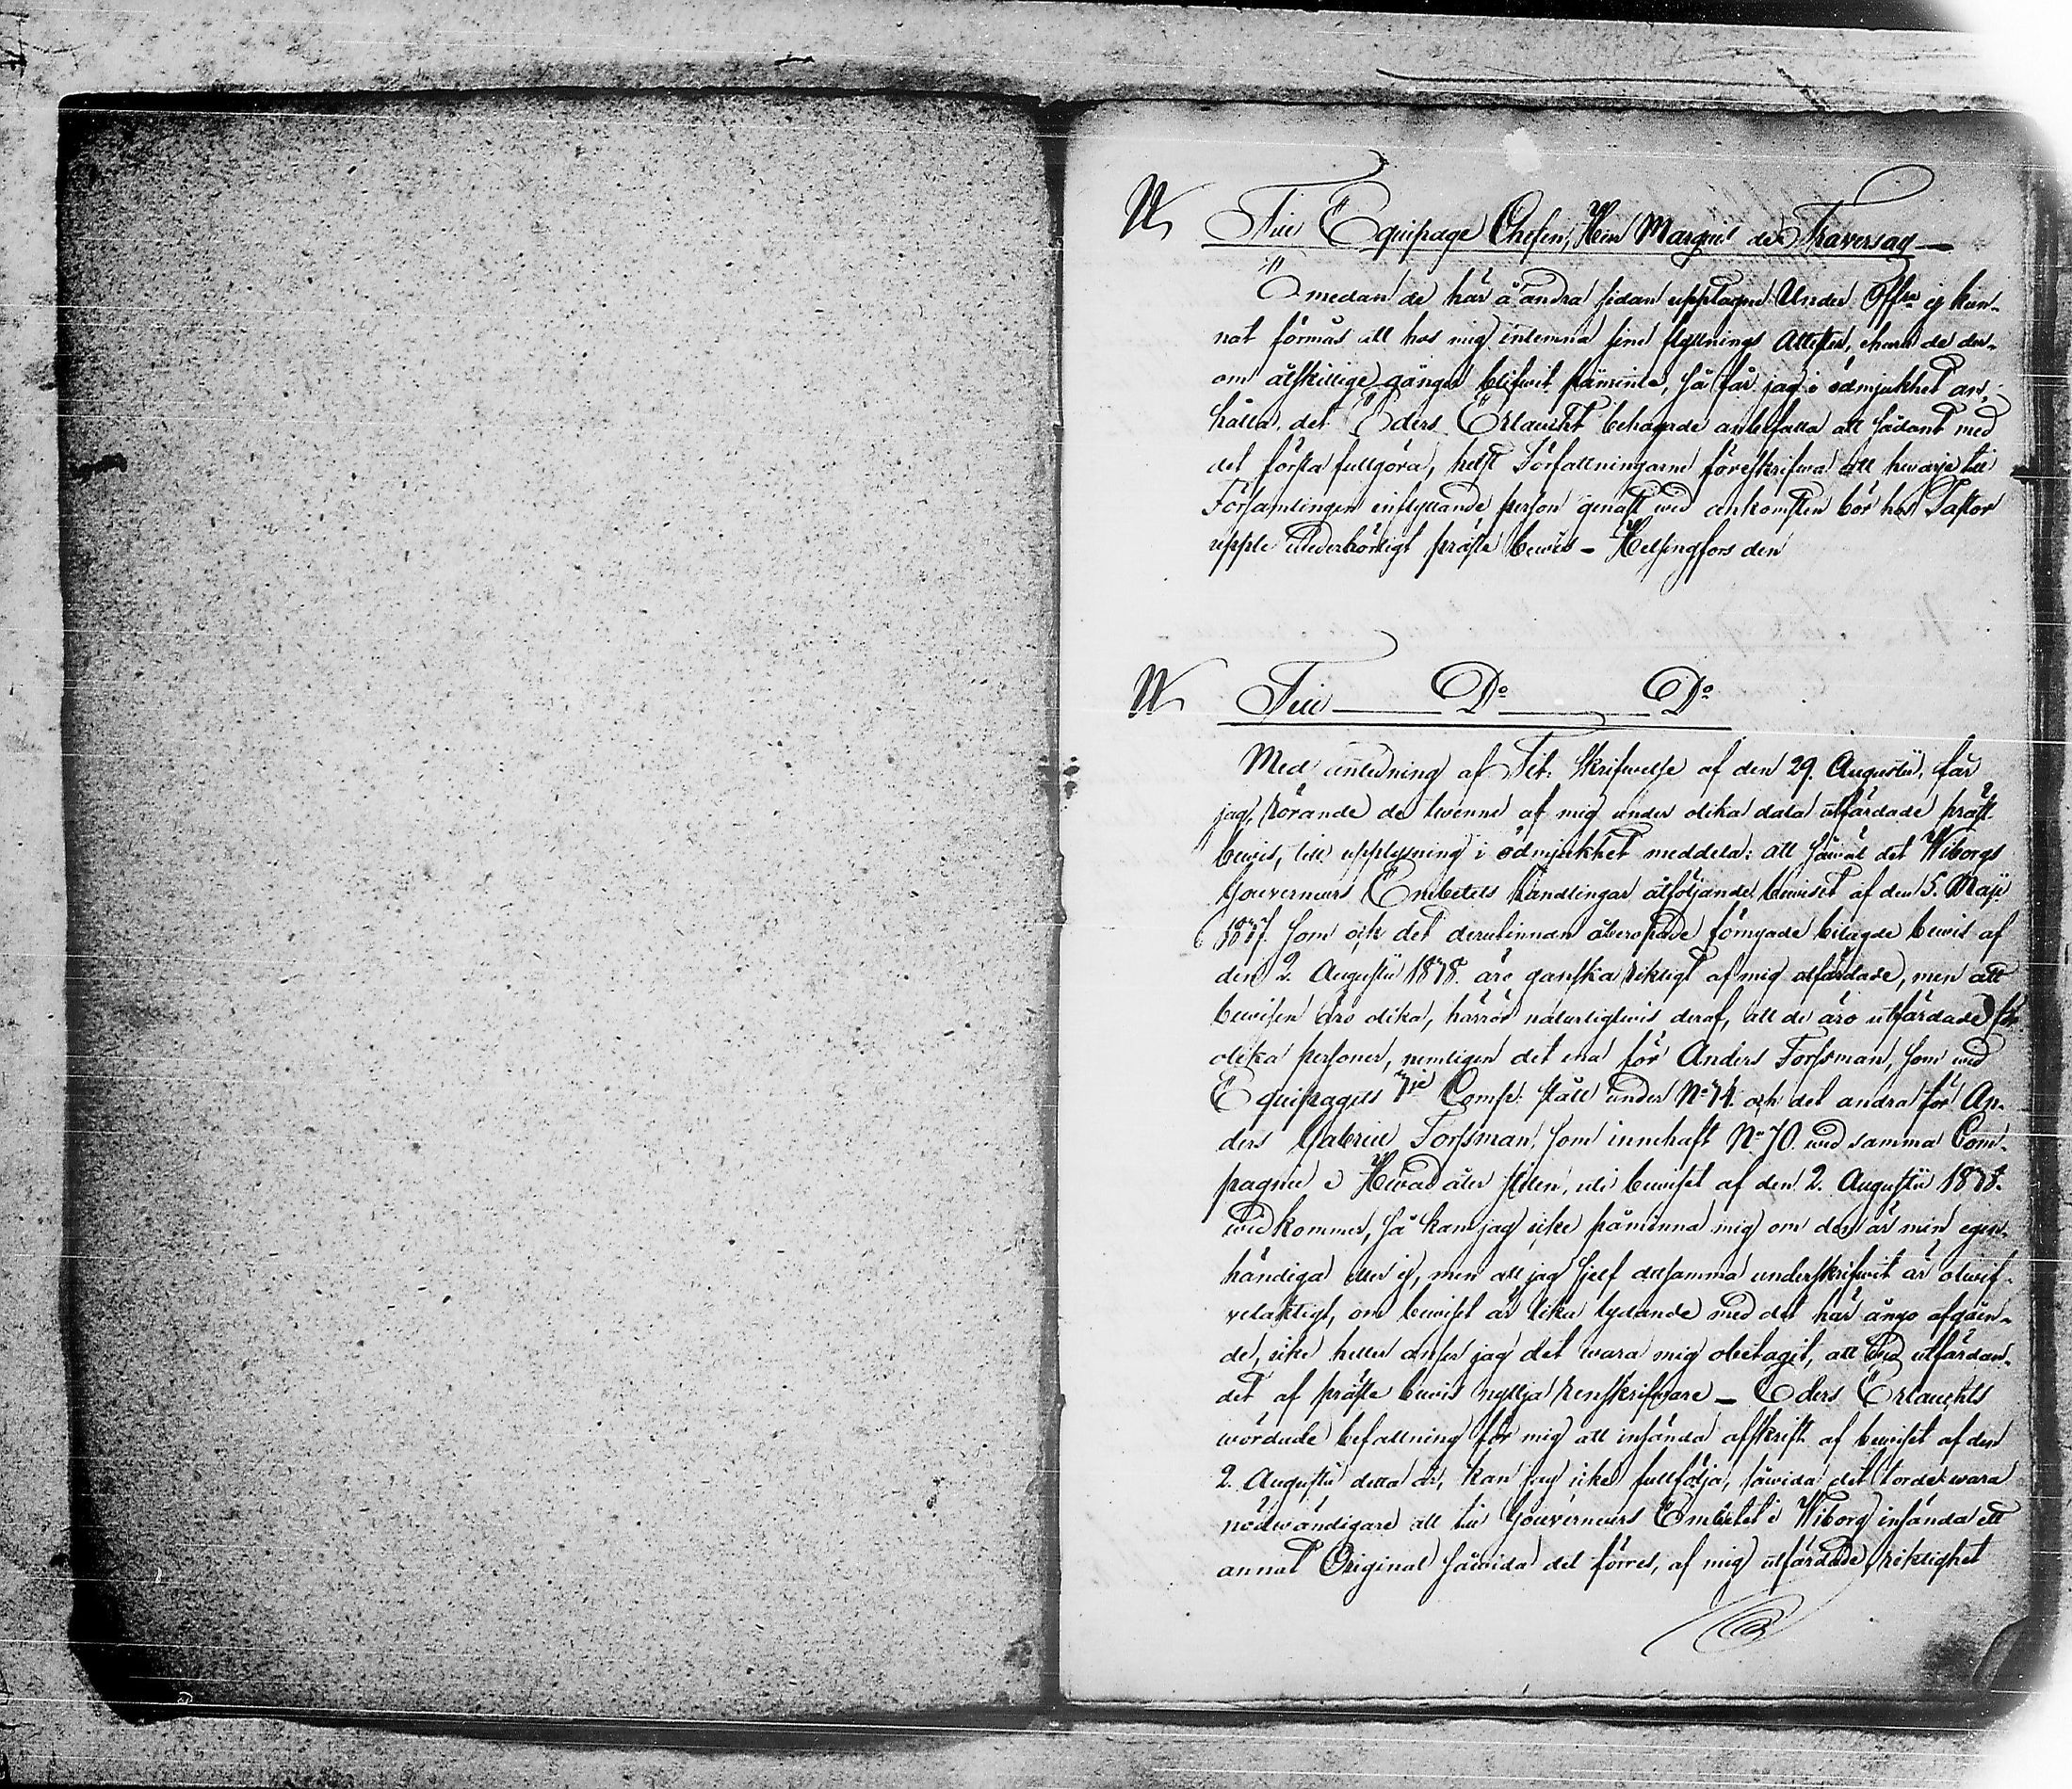 N
Till Equipage Chefen, Herr Marquis de Traversay
Emedan de här å andra sidan upptagne Under Offre ej kun-
nat förmås att hos mig inlemna sine flyttnings Attester, ehuru de der-
om åtskillige gånger blifwit påminte, så får jag i ödmjukhet an-
hålla, det Eders Erlaucht behagade anbefalla att sådant med
det första fullgöra, helst Författningarne föreskrifwa att hwarje till
Församlingen inflyttande person genast wid ankomsten bör hos Pastor
uppte wederbörligt präste bewis – Helsingfors den
N
Till Do Do
Med anledning af Tit: skrifwelse af den 29. Augustii, får
jag, rörande de twenne af mig under olika data utfärdade präst
bewis, till upplysning i ödmjukhet meddela: att såwäl det Wiborgs
Gouverneurs Embetets handlingar åtföljande bewiset af den 5. Maji
som och det derutinnan åberopade förnyade bilagde bewis af
den 2. Augustii 1838. äro ganska riktigt af mig utfärdade, men att
bewisen äro olika, härrör naturligtwis deraf, att de äro utfärdade för
olika personer, nemligen det ena för Anders Forssman, som wid
Equipagets 7de Comp: stått under No 74. och det andra för An-
ders Gabriel Forssman, som innehaft No 70. wid samma Com-
pagnie. Hwad åter stilen, uti bewiset af den 2. Augustii 1838.
widkommer, så kan jag icke påminna mig om den är min egen-
händiga eller ej, men att jag sjelf detsamma underskrifwit är otwif-
velaktigt, om bewiset är lika lydande med det här ånyo afgåen-
de, icke heller anser jag det wara mig obetaget, att wid utfärdan-
det af präste bewis nyttja renskrifware – Eders Erlauchts
wördade befallning för mig att insända afskrift af bewiset af den
2. Augustii detta år, kan jag icke fullfölja, såwida det torde wara
nödwändigare att till Gouverneurs Embetet i Wiborg insända ett
annat Original såwida det förres, af mig utfärdade, riktighet